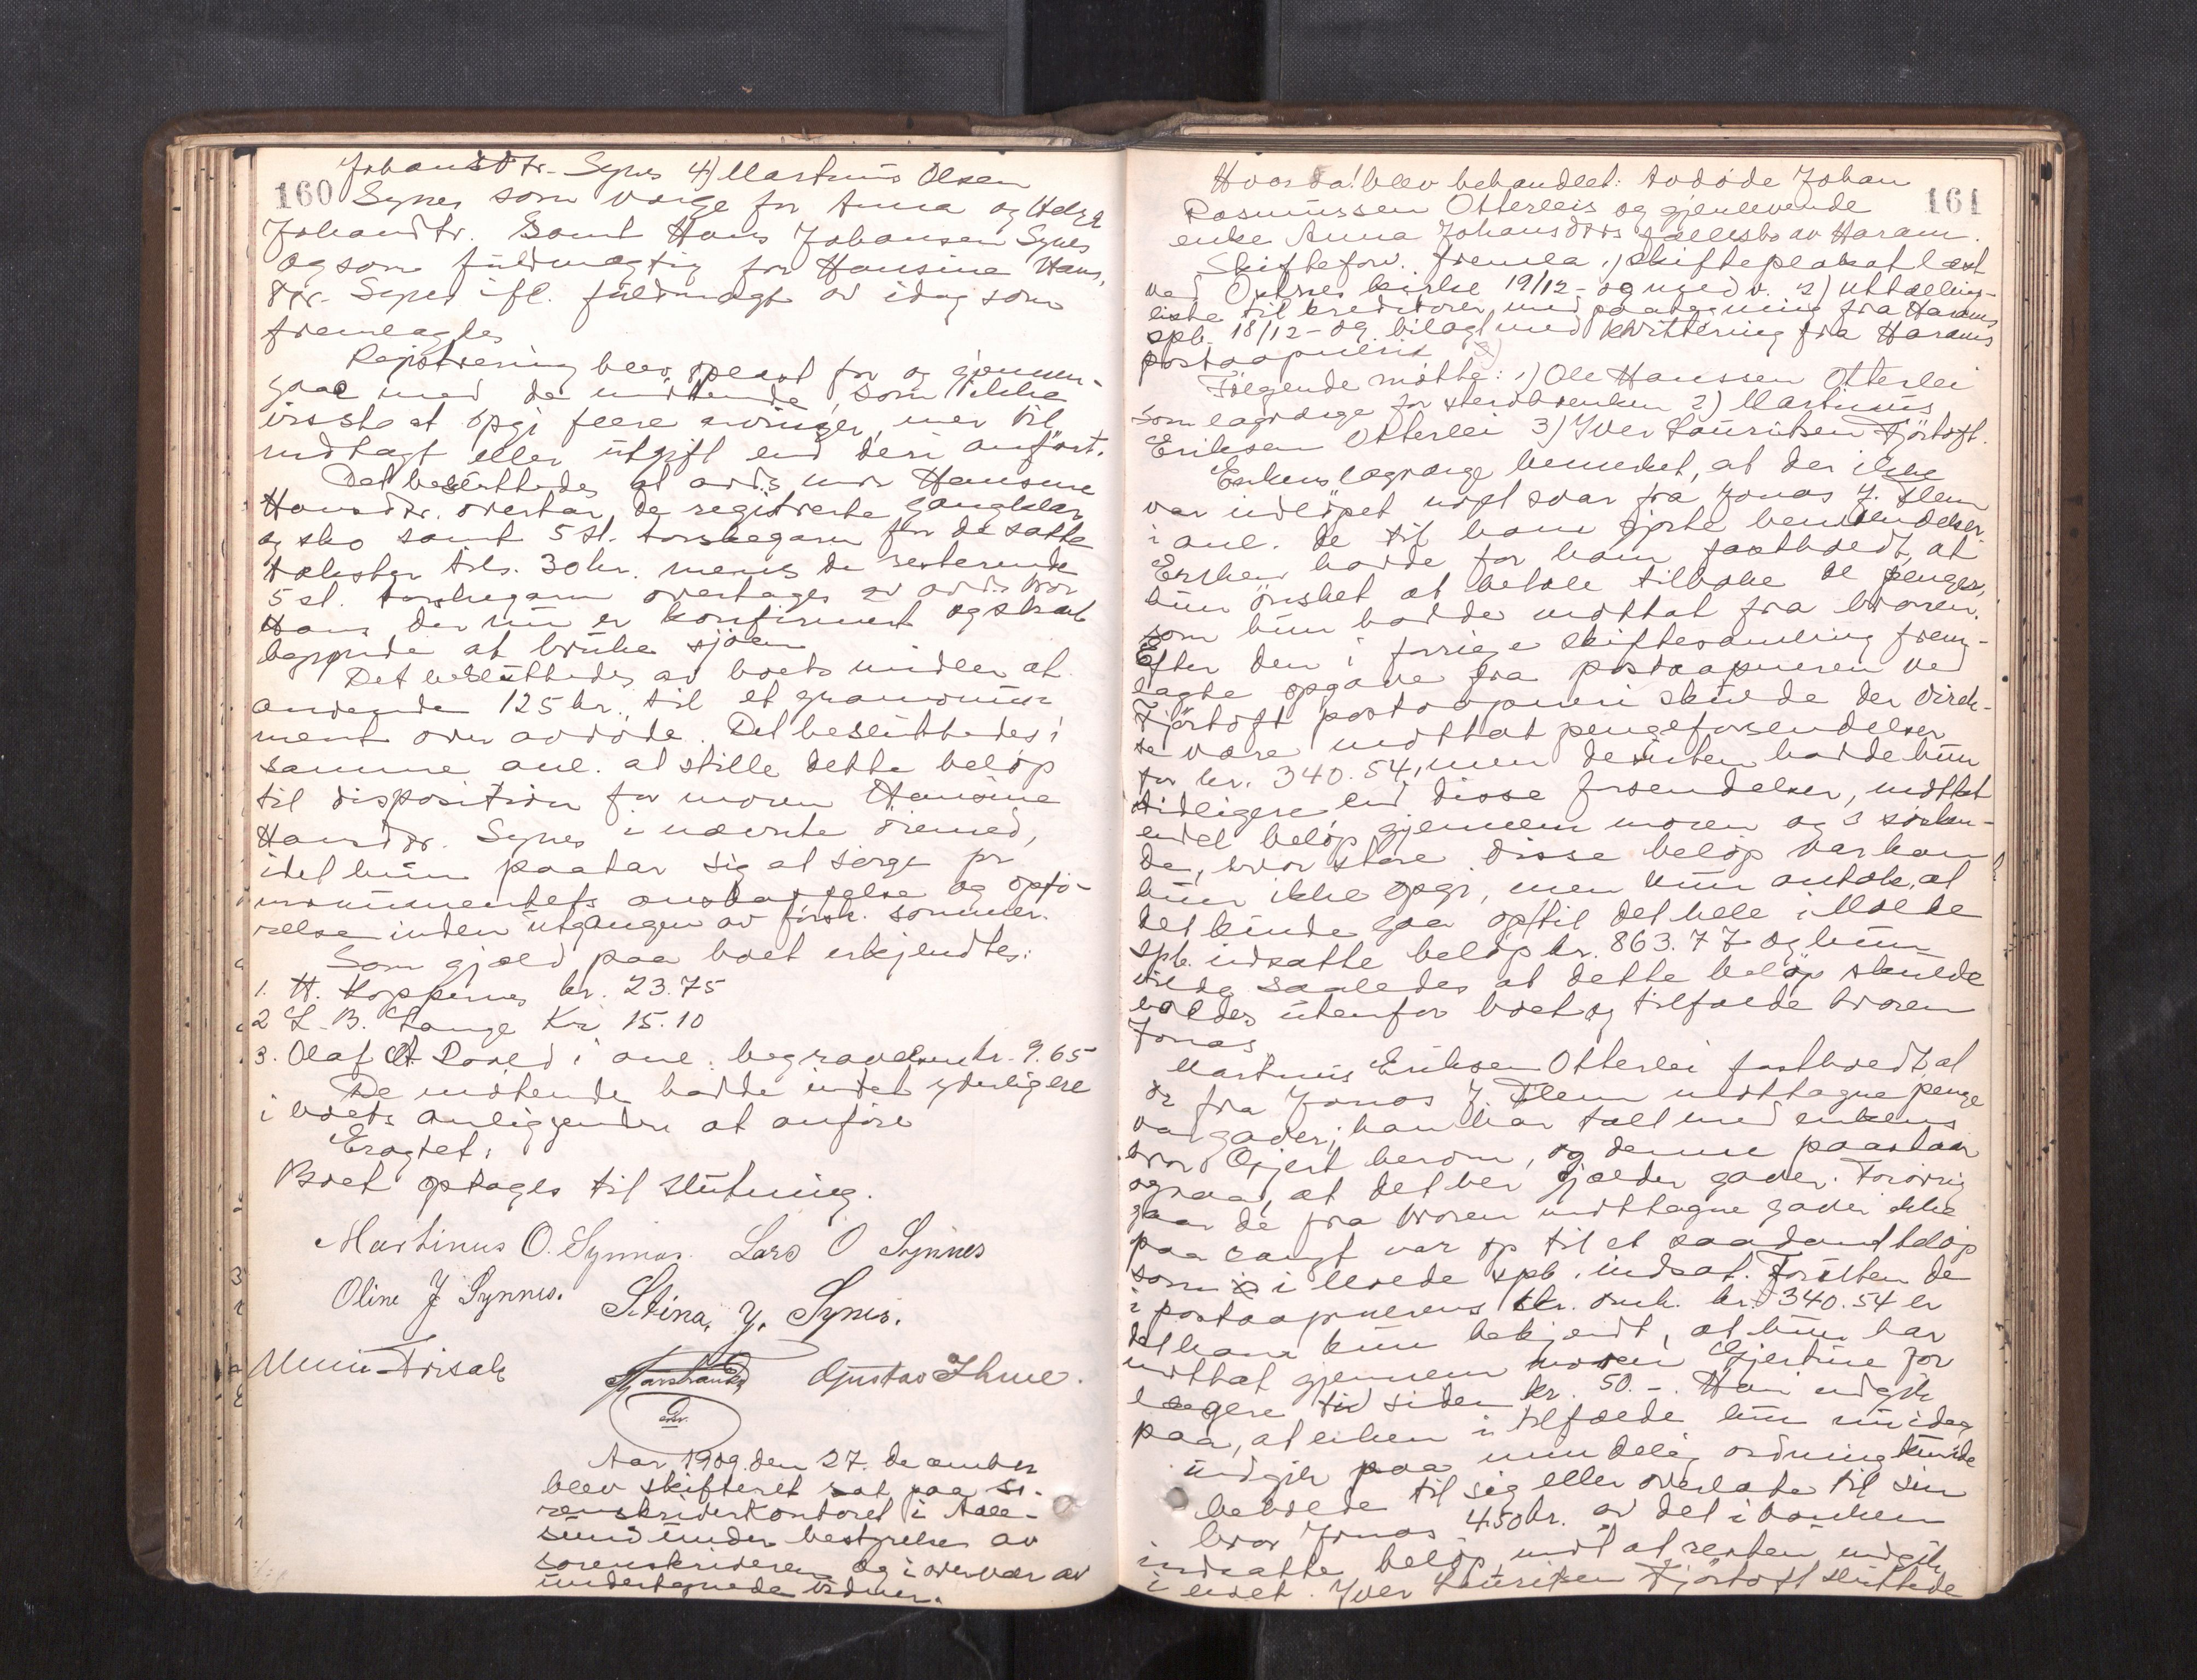 Johansdtr. Synes 4) Martinus Olsen
160 Synes som verge for Anna og Helga
Johansdtr. Samt Hans Johansen Synes
ogsom fuldmægtig for Hansine Hans-
dtr. Synes ifl. fuldmagt av idag som
fremlagdes
Registrering blev oplæst for og gjennem-
gaaet med de møtende, som ikke
visste at opgi flere arvinger, mer til
indtægt eller utgift end deri anført.
Det besluttedes at avds mor Hansine
Hansdtr. overtar de registrerte gangklær
og sko samt 5 st. torskegarn for de satte
takster tils. 30 kr. mens de resterende
5 st. torskegarn overtages av avds bror
Hans der nu er konfirmert og skal
begynde at bruke sjøen
Det besluttedes av boets midler at
anvende 125 kr. til et gravmonu-
ment over avdøde. Det besluttedes i
samme anl. at stille dette beløp
til disposition for moren Hansine
Hansdtr. Synes i nævnte øiemed,
idet hun paatar sig at sørge for
monumentets anskaffelse og opfø-
relse inden utgangen av førstk. sommer.
Som gjæld paa boet erkjendtes:
1. H. Koppernes kr. 23.75
2 L. B. Lange Kr. 15.10
3. Olaf A. Roald i anl. begravelsen kr. 9.65
De møtende hadde intet yderligere
i boets anliggender at anføre
Eragtet:
Boet optages til slutning.
Martinus O. Synnes. Lars O Synnes
Oline J Synnes. Stina, J. Synes.
Gustav Thue.
Aar 1909 den 27. december
blev skifteret sat paa so-
renskriverkontoret i Aale-
sund under bestyrelse av
sorenskriveren og i overvær av
undertegnede vidner.
Hvorda! blev behandlet: avdøde Johan
161
Rasmussen Otterleis og gjenlevende
enke Anna Johansdtrs fællesbo av Haram.
Skifteforv. fremla 1) skifteplakat læst
ved kirke 19/12 - og 2) uttællings-
liste til kreditorer, med paategning fra Harams
spb. 18/12 - og bilagt med kvittering fra Harams
postaapneri 3)
Følgende møtte: 1) Ole Hanssen Otterlei
som lagværge for sterbbenken 2) Martinus
Eriksen Otterlei 3) Iver Lauritsen Fjørtoft.
Enkens lagværge bemerket, at der ikke
var indløpet noget svar fra Jonas J. Flem
i anl. de til ham gjorte henvendelser.
Enken hadde for ham fastholdt, at
hun ønsket at betale tilbake de penger,
som hun hadde mottat fra broren.
Efter den i forrige skiftesamling frem-
lagte opgave fra postaapneren ved
Fjørtoft postaapneri skulde der direk-
te være mottat pengeforsendelser
for kr. 340.54, men desuten hadde hun
tidligere end disse forsendelser, mottat
endel beløp gjennem moren og 3 søsken-
de, hvor store disse beløp var kan
hun ikke opgi, men hun antok, at
det kunde gaa op til det hele i Molde
spb. indsatte beløp kr. 863.77 og hun
vilde saaledes at dette beløp skulde
holdes utenfor boet og tilfalde broren
Jonas
Martinus Eriksen Otterlei fastholdt, at
de fra Jonas J. Flem mottagne penge
var gaver; han har talt med enkens
bror Gjert herom, og denne paastaar
ogsaa, at det her gjælder gaver. Forøvrig
gaar de fra broren mottagne gaver ikke
paa langt nær op til et saadant beløp
som i Molde spb. indsat. Foruten de
i postaapnerens skr. omh. kr. 340.54 er
det ham kun bekjendt, at hun har
mottat gjennem moren Gjertine for
længere tid siden kr. 50.-. Han indgik
paa, at enken i tilfælde hun nu idag
indgik paa mindelig ordning kunde
beholde til sig eller overlate til sin
bror Jonas 450 kr. av det i banken
indsatte beløp mot at resten indgik
i boet. Iver Lauritsen Fjørtoft sluttede